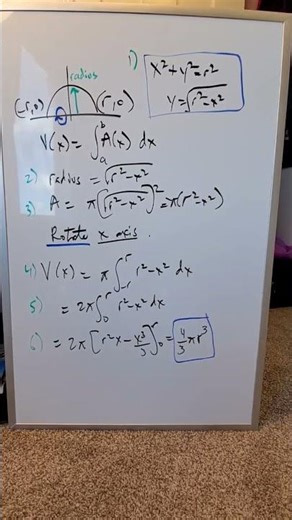 1) x²+y²=r²
y=√(r²-x²)
radius
(-r,0) (r,0)
V(x)=∫ₐᵇA(x) dx
2) radius=√(r²-x²)
3) A = π(√(r²-x²))²=π(r²-x²)
Rotate x axis.
4) V(x)= π∫₋ᵣʳ r²-x² dx
5) = 2π∫₀ʳ r²-x² dx
6) = 2π[r²x-x³/3]₀ʳ = 4/3 πr³